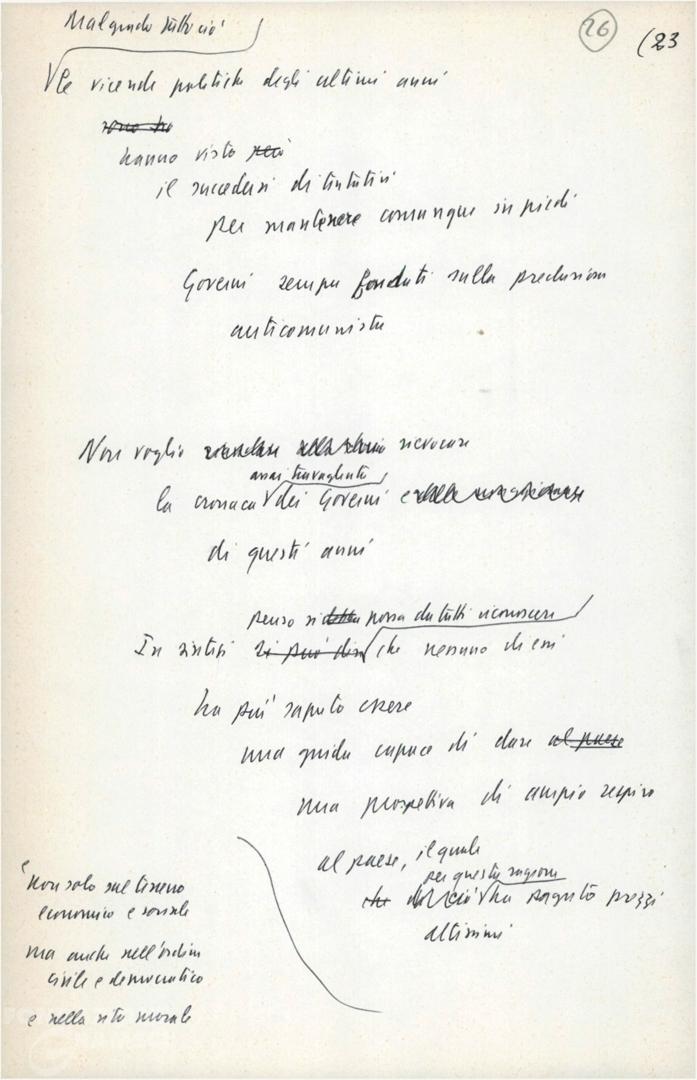 26
(23
Malgrado tutto ciò
Le vicende politiche degli ultimi anni
sono ho
hanno visto però
il succedersi di tentativi
per mantenere comunque in piedi
Governi sempre fondati sulla preclusione
anticomunista
Non voglio rievocare
assai travagliata
la cronaca dei Governi
di questi anni
penso si debba possa da tutti riconoscere
In sintesi si può dire che nessuno di essi
ha più saputo essere
una guida capace di dare al paese
una prospettiva di ampio respiro
al paese, il quale
per questa ragione
che ha pagato prezzi
altissimi
non solo sul terreno
economico e sociale
ma anche nell'ordine
civile e democratico
e nella vita morale